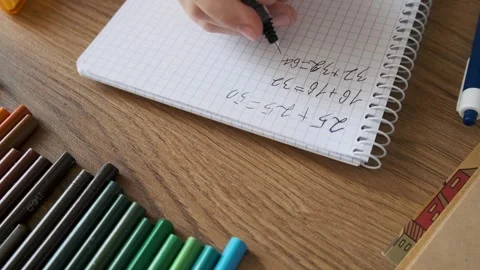 25+25=50
16+16=32
32+32=64